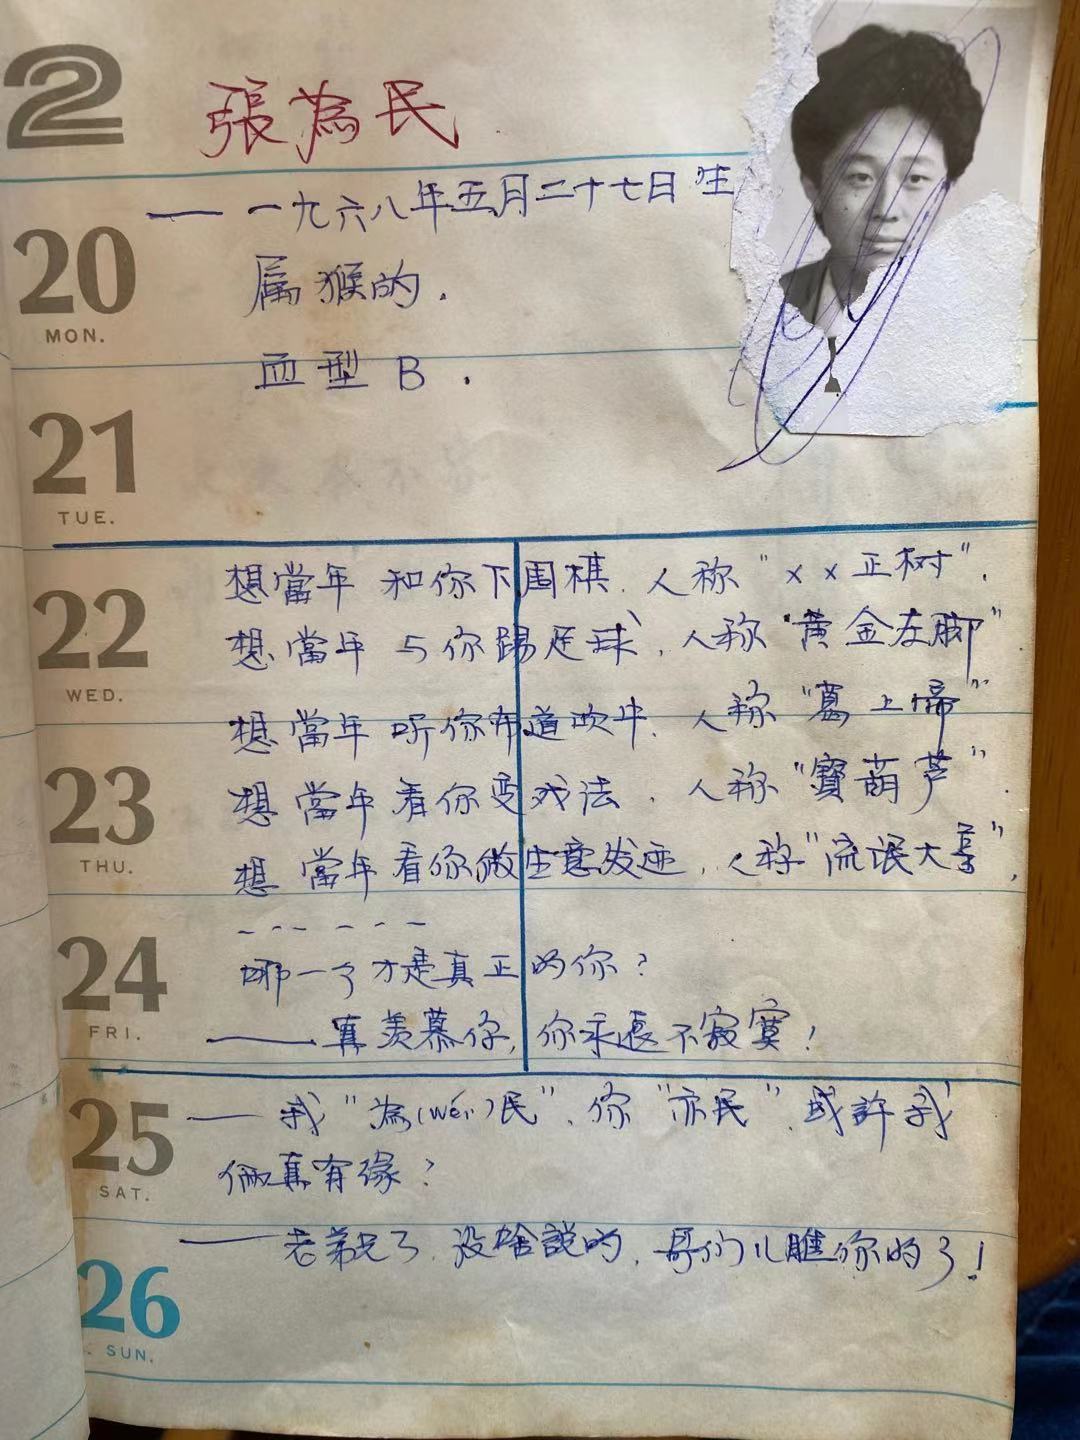 2
張為民
—— 一九六八年五月二十七日生
20
MON.
属猴的.
血型 B .
21
TUE.
22
WED.
想當年 和你下围棋, 人称"××正树".
想當年 与你踢足球, 人称"黄金左脚"
想當年 听你布道吹牛, 人称"葛上帝"
23
THU.
想當年看你变戏法, 人称"寶葫芦".
想當年看你做生意发迹, 人称"流氓大亨",
------
24
FRI.
哪一个才是真正的你?
—— 真羡慕你, 你永远不寂寞!
25
SAT.
—— 我"為(wéi)民", 你"亦民", 或許我
俩真有缘?
—— 老弟兄了, 没啥説的, 哥们儿瞧你的了!
26
SUN.